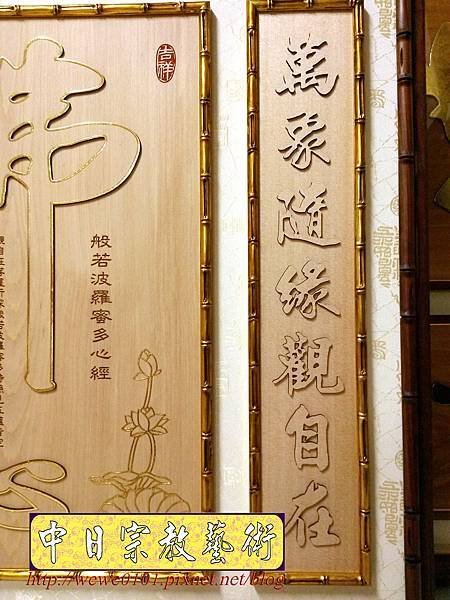 萬象隨緣觀自在
吉祥
佛
般若波羅蜜多心經
中日宗教藝術
http://wewe0101.pixnet.net/blog